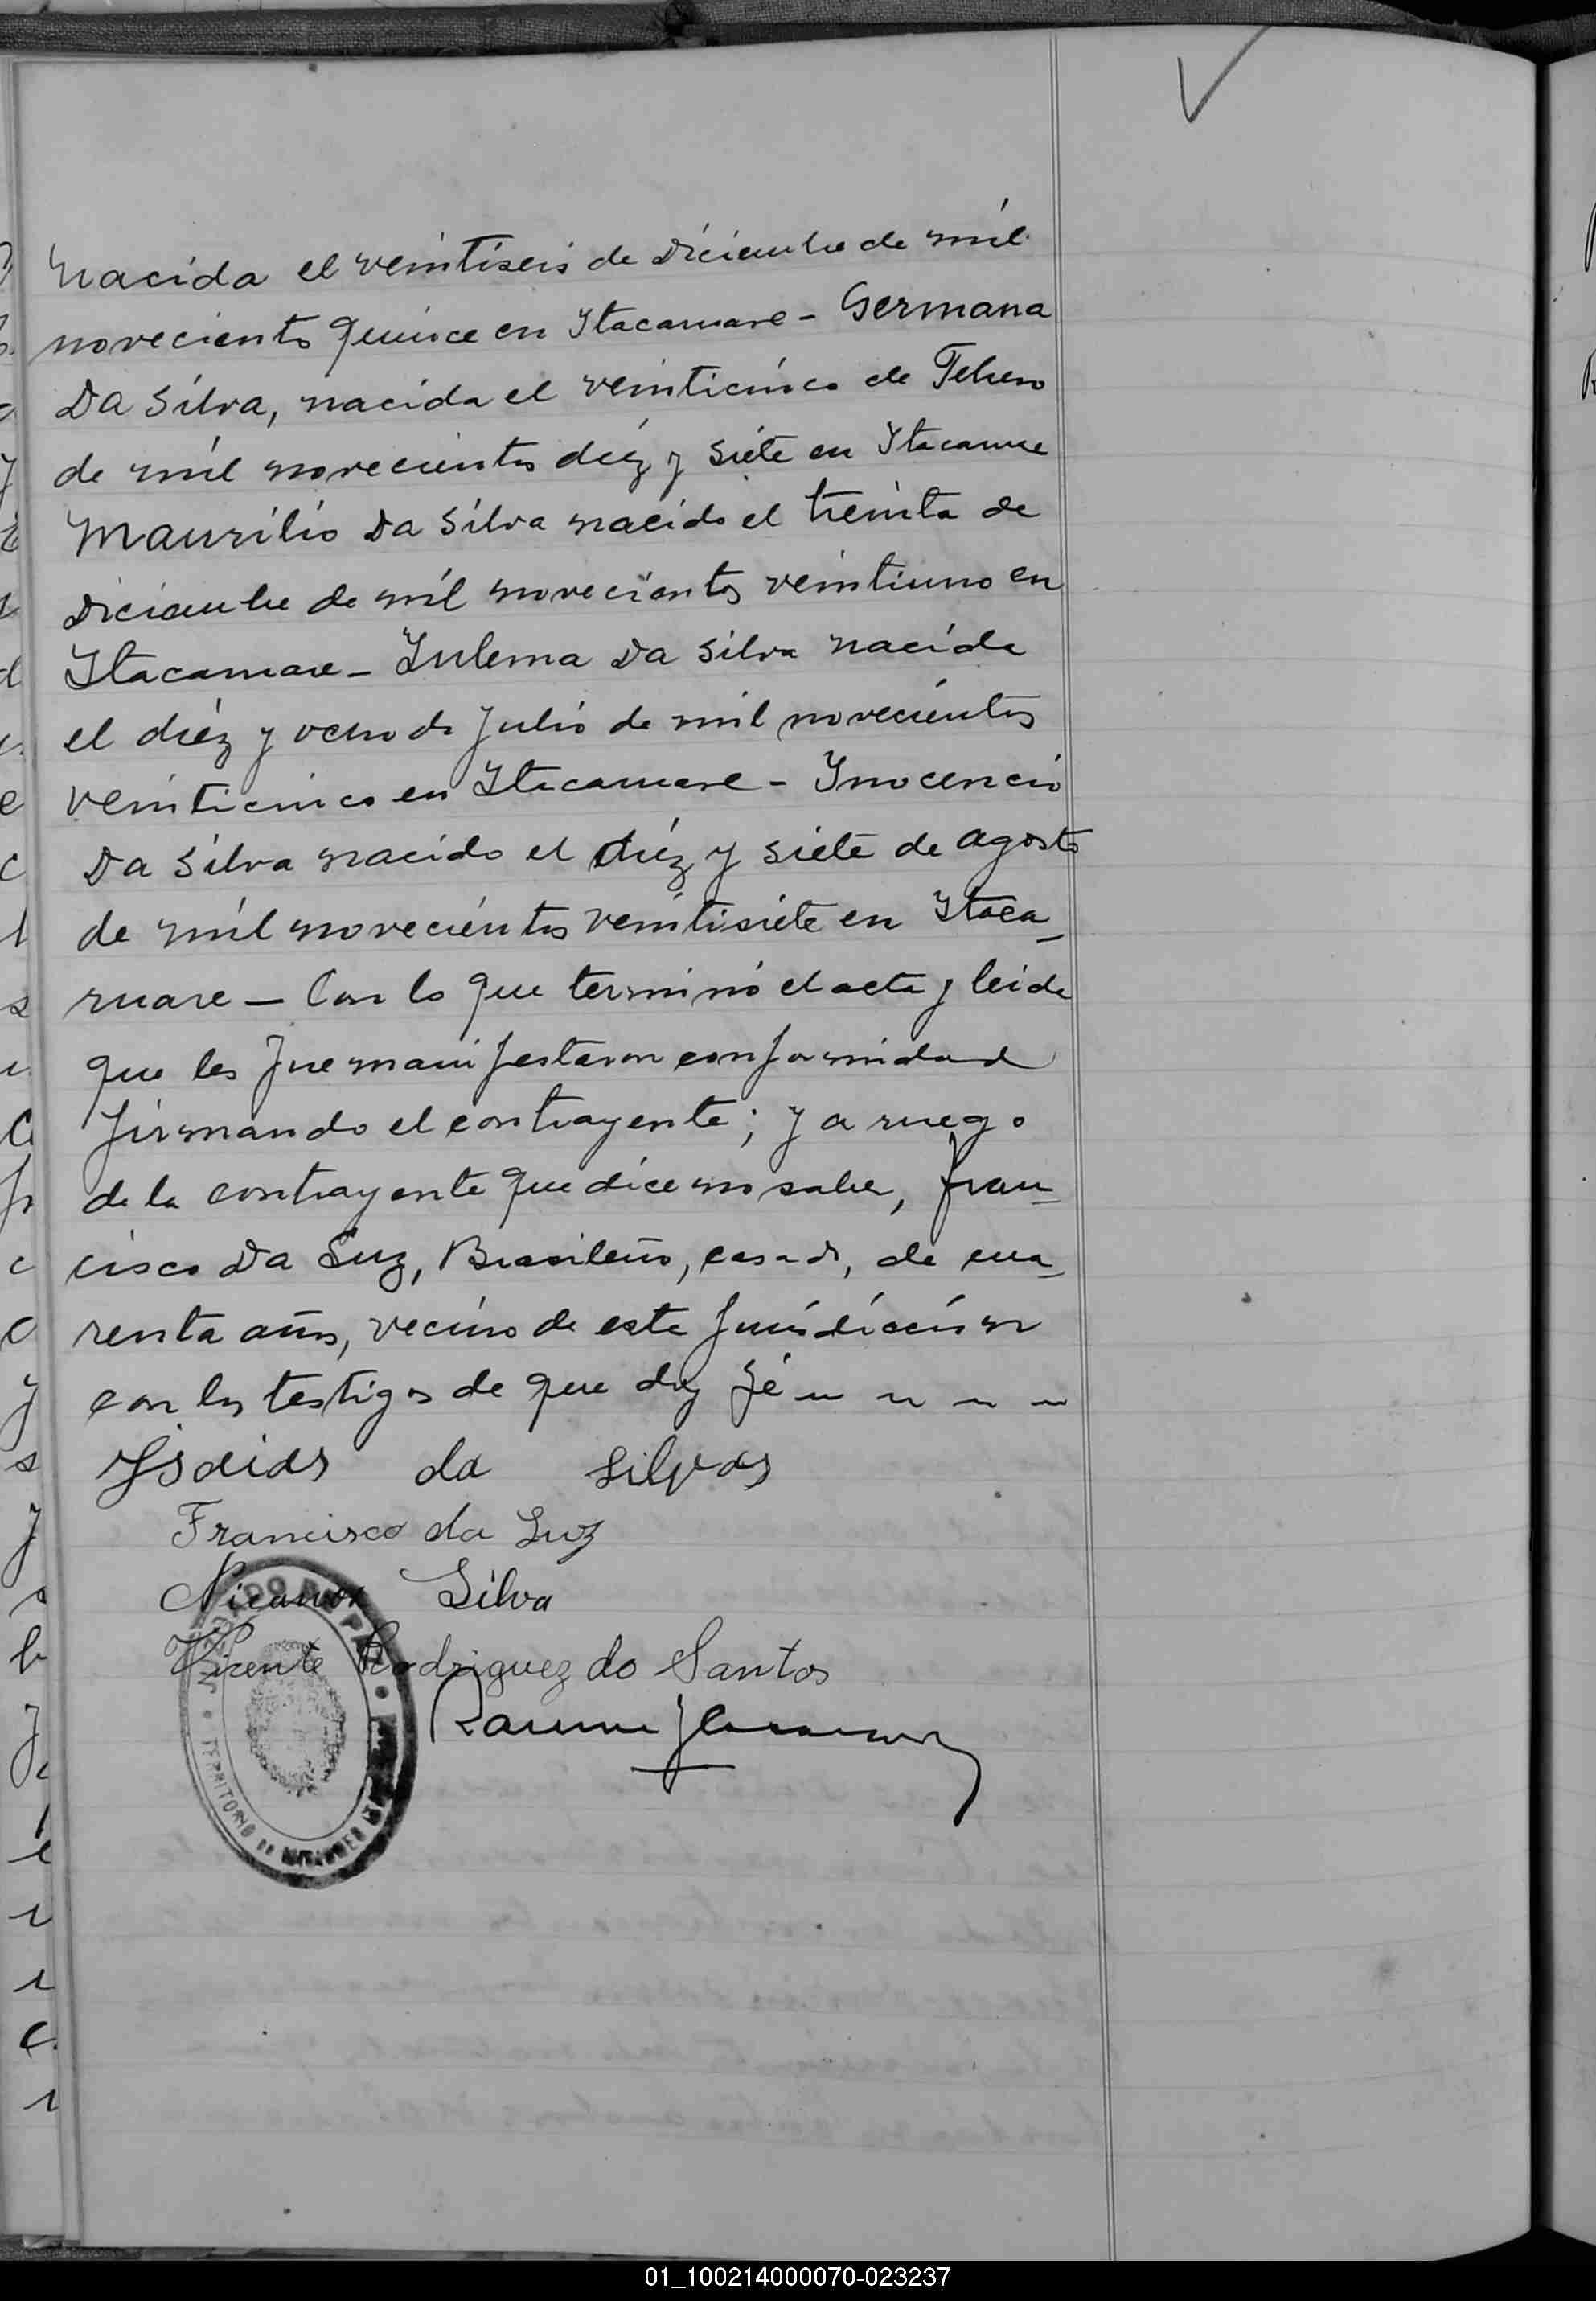 nacida el veintiseis de Diciembre de mil
noveciento quince en Itacaruare - Germana
Da Silva, nacida el veinticinco de Febrero
de mil novecientos diéz y siete en Itacaruare
Maurilio Da Silva nacido el treinta de
Diciembre de mil novecientos veintiuno en
Itacaruare - Zulema Da Silva nacida
el diéz y ocho de Julio de mil novecientos
veinticinco en Itacaruare - Inocencio
Da Silva nacido el diéz y siete de agosto
de mil novecientos veintisiete en Itaca_
ruare - Con lo que terminó el acta y leida
que les fue manifestaron conformidad
firmando el contrayente; y a ruego
de la contrayente que dice no saber, Fran_
cisco Da Luz, Brasileño, casado, de cua_
renta años, vecino de esta jurisdicción
con los testigos de que doy fé
Isaias da silvas
Francisco da Luz
Nicanor Silva
Vicente Rodriguez do Santos
TERRITORIO DE MISIONES
01_100214000070-023237